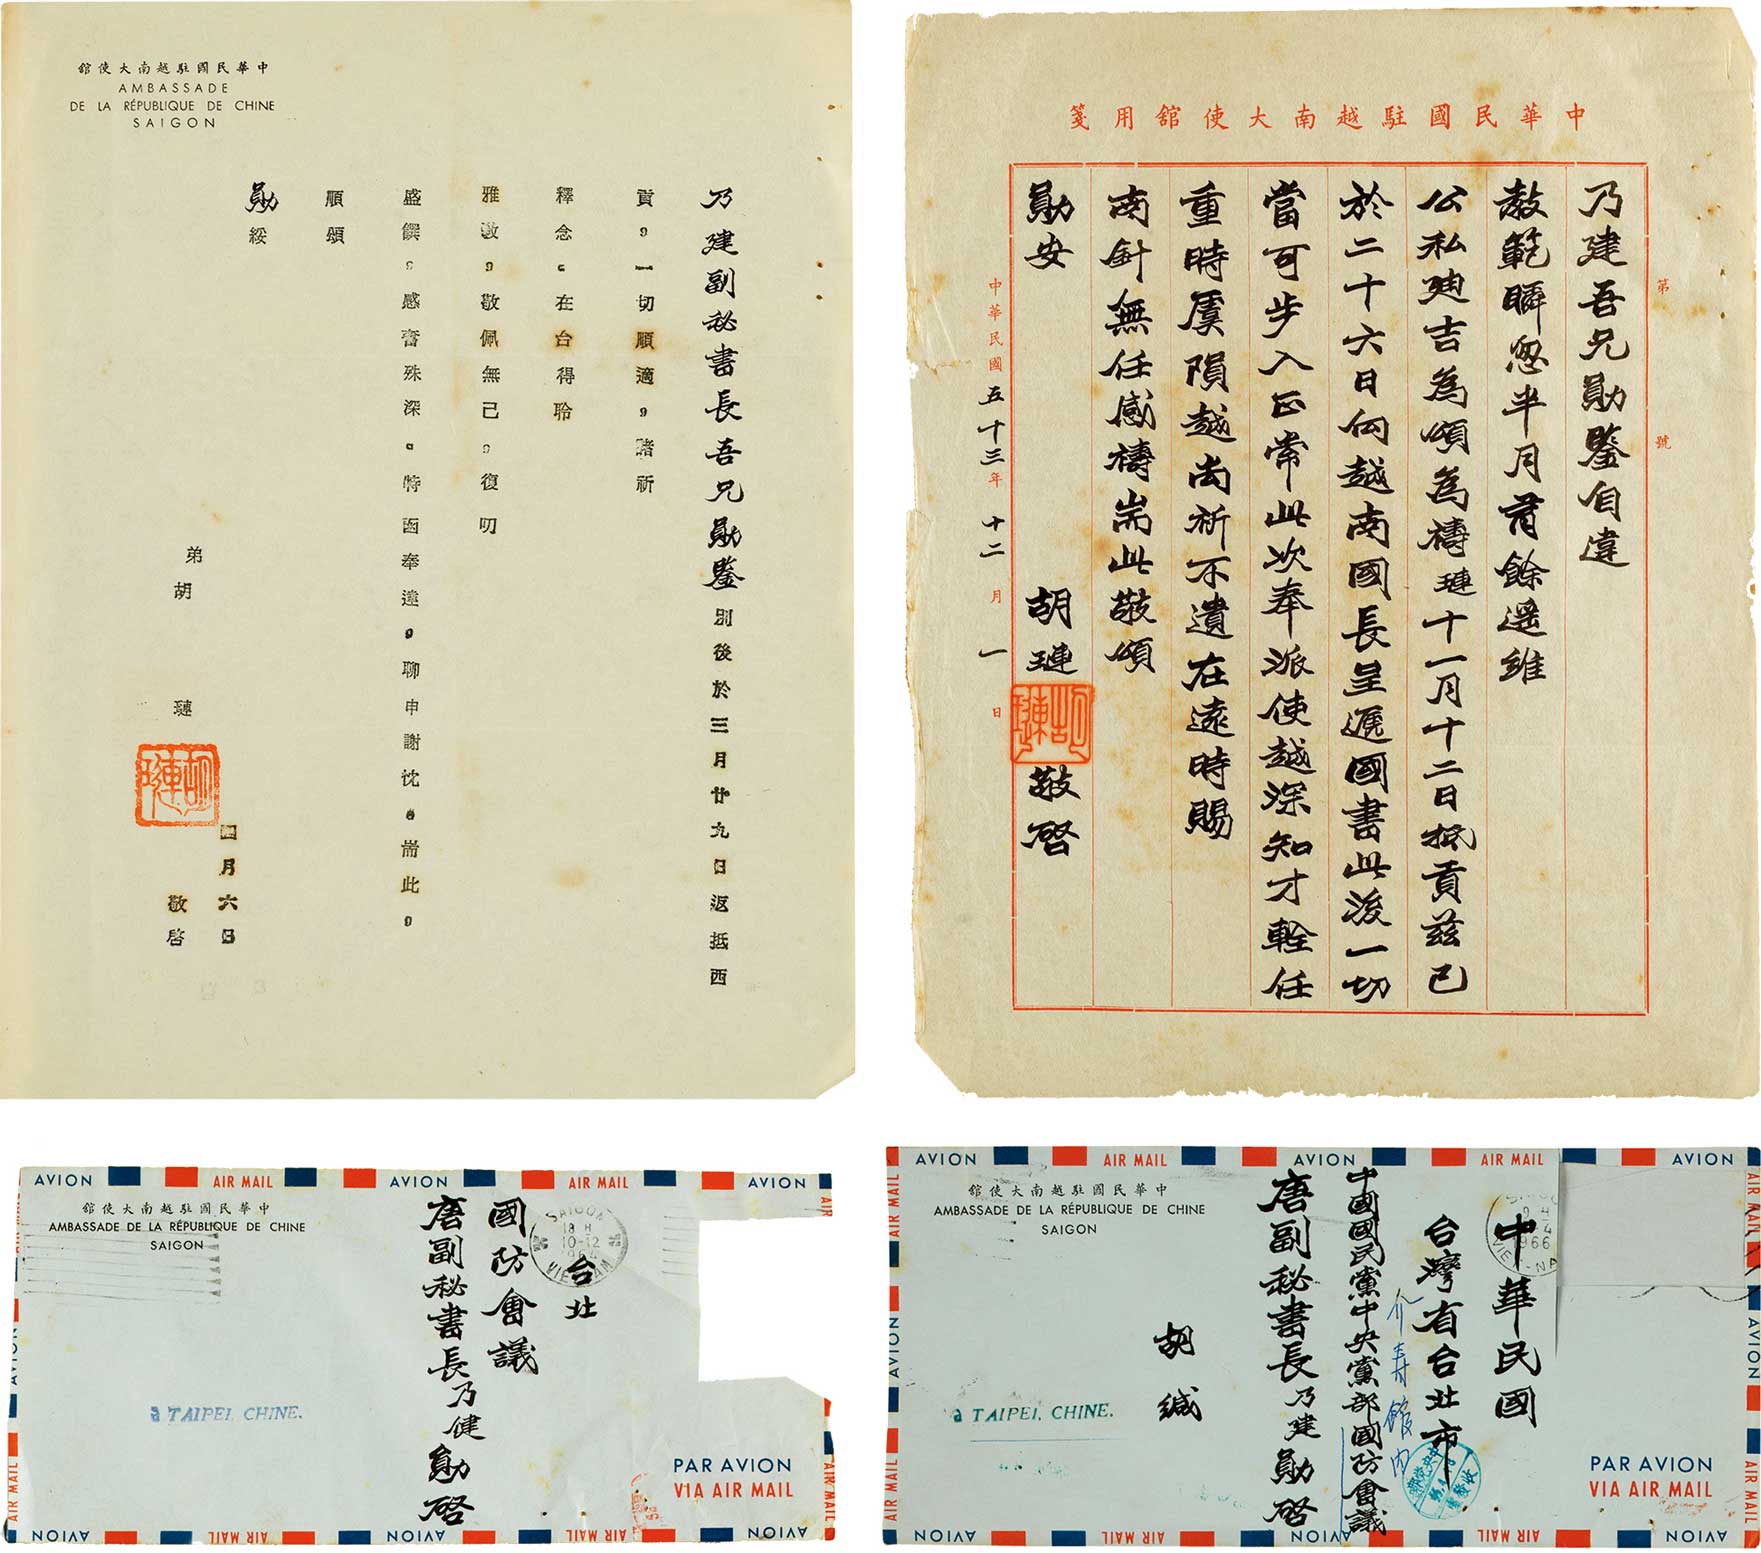 中華民國駐越南大使館
AMBASSADE
DE LA RÉPUBLIQUE DE CHINE
SAIGON
乃建副秘書長吾兄勛鑒別後於三月廿九日返抵西
貢，一切順適，諸祈
釋念。在台得聆
雅教，敬佩無已，復叨
盛饌，感奮殊深。特函奉達，聊申謝忱。耑此，
順頌
勛綏
弟胡璉
敬啓
四月六日
中華民國駐越南大使館用箋
第 號
乃建吾兄勛鑒自違
教範瞬忽半月有餘遙維
公私迪吉為頌為禱璉十一月十二日抵貢茲已
於二十六日向越南國長呈遞國書此後一切
當可步入正常此次奉派使越深知才輇任
重時虞隕越尚祈不遺在遠時賜
南針無任感禱耑此敬頌
勛安
胡璉敬啓
中華民國五十三年十二月一日
AVION AIR MAIL AVION AIR MAIL AVION
中華民國駐越南大使館
AMBASSADE DE LA RÉPUBLIQUE DE CHINE
SAIGON
SAIGON
10-12
1964
VIETNAM
台北
國防會議
唐副秘書長乃健勛啓
à TAIPEI, CHINE.
PAR AVION
VIA AIR MAIL
AVION AIR MAIL AVION AIR MAIL AVION
AVION AIR MAIL AVION AIR MAIL AVION
中華民國駐越南大使館
AMBASSADE DE LA RÉPUBLIQUE DE CHINE
SAIGON
1966
VIET-NA
中華民國
台灣省台北市
介壽館內
中國國民黨中央黨部國防會議
唐副秘書長乃建勛啓
胡緘
à TAIPEI, CHINE.
PAR AVION
VIA AIR MAIL
AVION AIR MAIL AVION AIR MAIL AVION